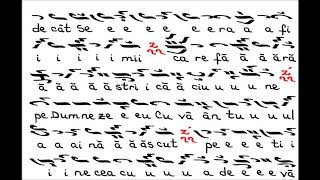 de cât Se e e e e e ra a a fi
i i i i mii ca re fă ă ă ără
ă ă ă ă stri i că ă ciu u u u ne
pe. Dumne ze e e u Cu vă ân tu u u ul
a a ai nă ă ă ăs cut pe e e e ti i
i i ne cea cu u u u a de e e e vă